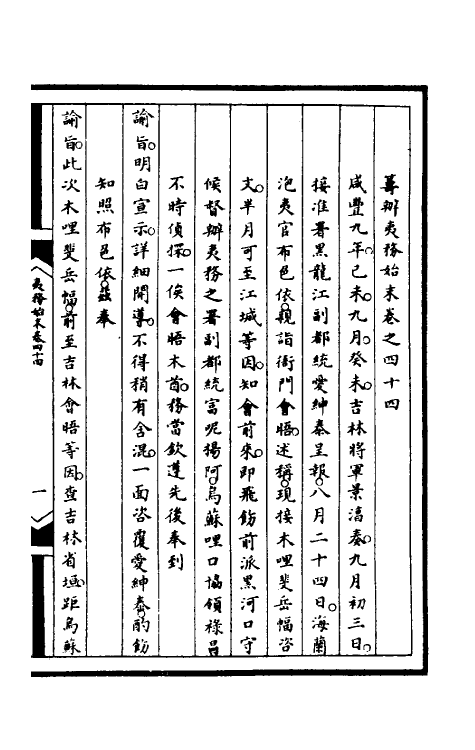 籌辦夷務始末卷之四十四
咸豐九年己未九月癸未吉林將軍景淳奏九月初三日
接准署黑龍江副都統愛紳泰呈報八月二十四日海蘭
泡夷官布色依親詣衙門會晤述稱現接木哩斐岳幅咨
文半月可至江城等因知會前來即飛飭前派黑河口守
候督辦夷務之署副都統富呢揚阿烏蘇哩口協領祿昌
不時偵探一俟會晤木酋務當欽遵先後奉到
諭旨明白宣示詳細開導不得稍有含混一面咨覆愛紳泰酌飭
知照布色依茲奉
諭旨此次木哩斐岳幅前至吉林會晤等因查吉林省垣距烏蘇
夷務始末卷四十四
一